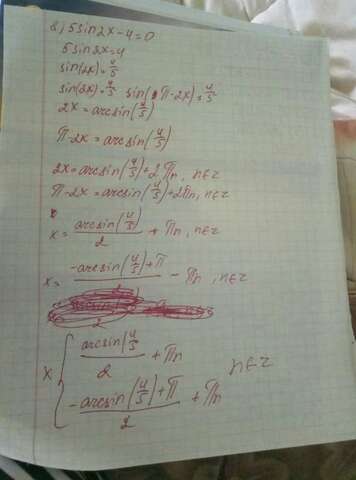 2) 5sin2x-4=0
5sin2x=4
sin(2x)=4/5
sin(2x)=4/5 sin(π-2x)=4/5
2x=arcsin(4/5)
π-2x=arcsin(4/5)
2x=arcsin(4/5)+2πn, n∈z
π-2x=arcsin(4/5)+2πn, n∈z
x=arcsin(4/5)/2 + πn, n∈z
x=-arcsin(4/5)+π/2 - πn, n∈z
x { arcsin(4/5/2 + πn
-arcsin(4/5)+π/2 + πn n∈z